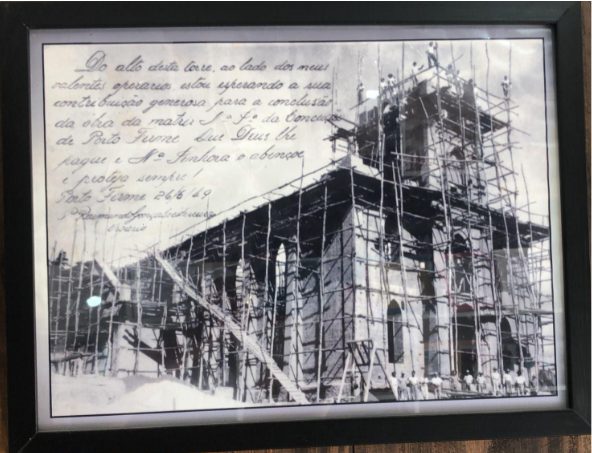 Do alto desta torre, ao lado dos meus
valentes operarios estou esperando a sua
contribuição generosa para a conclusão
da obra da matriz N. S. da Conceição
de Porto Firme Que Deus lhe
pague e Nª Senhora o abençoe
e proteja sempre!
Porto Firme 26/6/49